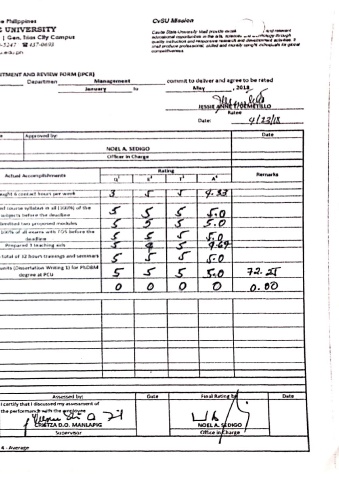 e Philippines
CvSU Mission
E UNIVERSITY
| Gen. Trias City Campus
-5247 ☎ 437-0693
u.edu.ph
Cavite State University shall provide
and relevant
educational opportunities in the arts, sciences and technology through
quality instruction and responsive research and development activities. It
shall produce professional, skilled and morally upright individuals for global
competitiveness.
ITMENT AND REVIEW FORM (IPCR)
Department Management commit to deliver and agree to be rated
January to May , 2018
JESSIE ANNE T. DEMETILLO
Ratee
Date: 4/23/18
e Approved by: Date
NOEL A. SEDIGO
Officer in Charge
Actual Accomplishments Rating Remarks
Q1 E2 T3 A4
ught 6 contact hours per week 3 5 5 4.33
d course syllabus in all (100%) of the
subjects before the deadline 5 5 5 5.0
bmitted two proposed modules 5 5 5 5.0
100% of all exams with TOS before the
deadline 5 5 5 5.0
Prepared 3 teaching aids 5 4 5 4.67
total of 32 hours trainings and seminars 5 5 5 5.0
units (Dissertation Writing 1) for PhDBM
degree at PCU 5 5 5 5.0 72.25
0 0 0 0 0.00
Assessed by: Date Final Rating by Date
I certify that I discussed my assessment of
the performance with the employee
LIRETZA D.O. MANLAPIG NOEL A. SEDIGO
Supervisor Office in Charge
4 - Average